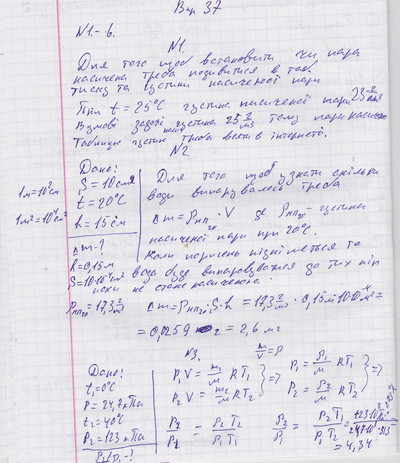 Вар 37
N1-б.
N1
Для того щоб встановити чи пара
насичена треба подивитися в табл
тиску та густини насиченої пари
При t = 25°С густина насиченої пари 23 г/м3
В умові задачі густина 25 г/м3 тому пара насичена
Таблицю густин треба взяти в інтернеті.
N2
Дано:
S = 10см2
t = 20°С
h = 15см
Δm-?
h = 0,15м
S = 10·10⁻⁴м²
ρнп20 = 17,3 г/м3
1м = 10²см
1м² = 10⁴см²
Для того щоб узнати скільки
води випарувалося треба
Δm = ρнп20 · V де ρнп20 - густина
насиченої пари при 20°С.
Коли поршень підніметься то
вода буде випаровуватися до тих пір
поки не стане насиченою.
Δm = ρнп20·S·h = 17,3 г/м3 · 0,15м·10·10⁻⁴м² =
= 0,00259 г = 2,6 мг
N3.
Дано:
t₁ = 0°С
P = 24,7кПа
t₂ = 40°С
P₂ = 123 кПа
ρ₂/ρ₁ - ?
m/V = ρ
P₁V = m₁/M RT₁
P₂V = m₂/M RT₂
=> P₁ = ρ₁/M RT₁
P₂ = ρ₂/M RT₂ =>
P₂/P₁ = ρ₂T₂/ρ₁T₁
ρ₂/ρ₁ = P₂T₁/P₁T₂
= 4,34